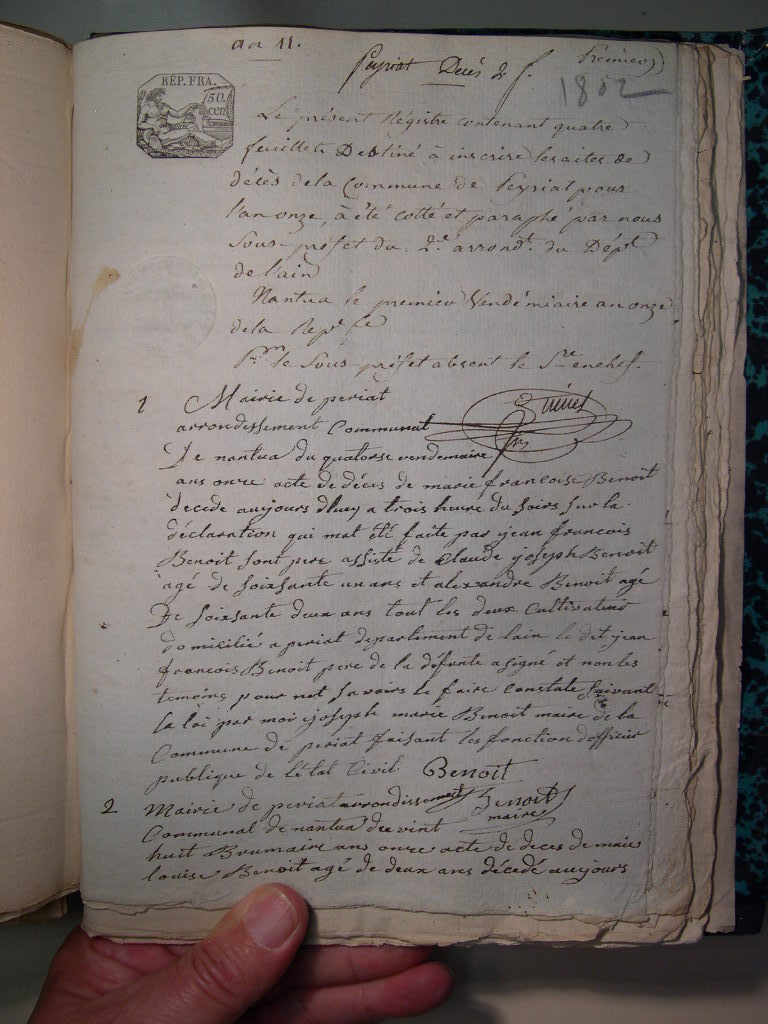 an 11.
Peyriat Décés 2 f.
Premier
1802
RÉP. FRA.
50.
cen
Le présent Registre contenant quatre
feuillets Destiné à inscrire les actes de
décès de la Commune de Peyriat pour
l'an onze, à été cotté et paraphé par nous
Sous-préfet du 2.e arrond.t du Dép.t
de l'ain
Nantua le premier Vendémiaire an onze
de la Rep.e f.se
P.r le Sous-préfet absent le S.re en chef.
1 Mairie de periat
arrondissement Communal
De nantua du quatorse vendemaire
ans onze acte de déces de marie francoise Benoit
decede aujours dhuy a trois heure du soirs sur la
déclaration qui mat été faite par jean francois
Benoit sont pere assisté de Claude joseph Benoit
agé de soixsante un ans et alexandre Benoit agé
De soixsante deux ans tout les deux Cultivateur
domicilié a periat departement de lain le dit jean
francois Benoit pere de la défunte a signé et non les
temoins pour not savoirs le faire Constate suivant
la loi par moi joseph marie Benoit maire de la
Commune de periat faisant les fonction dofficier
publique de Létat Civil Benoit
Benoit
maire
2 Mairie de periat arrondissement
Communal de nantua du vint
huit Brumaire ans onze acte de deces de marie
louise Benoit agé de deux ans décédé aujours